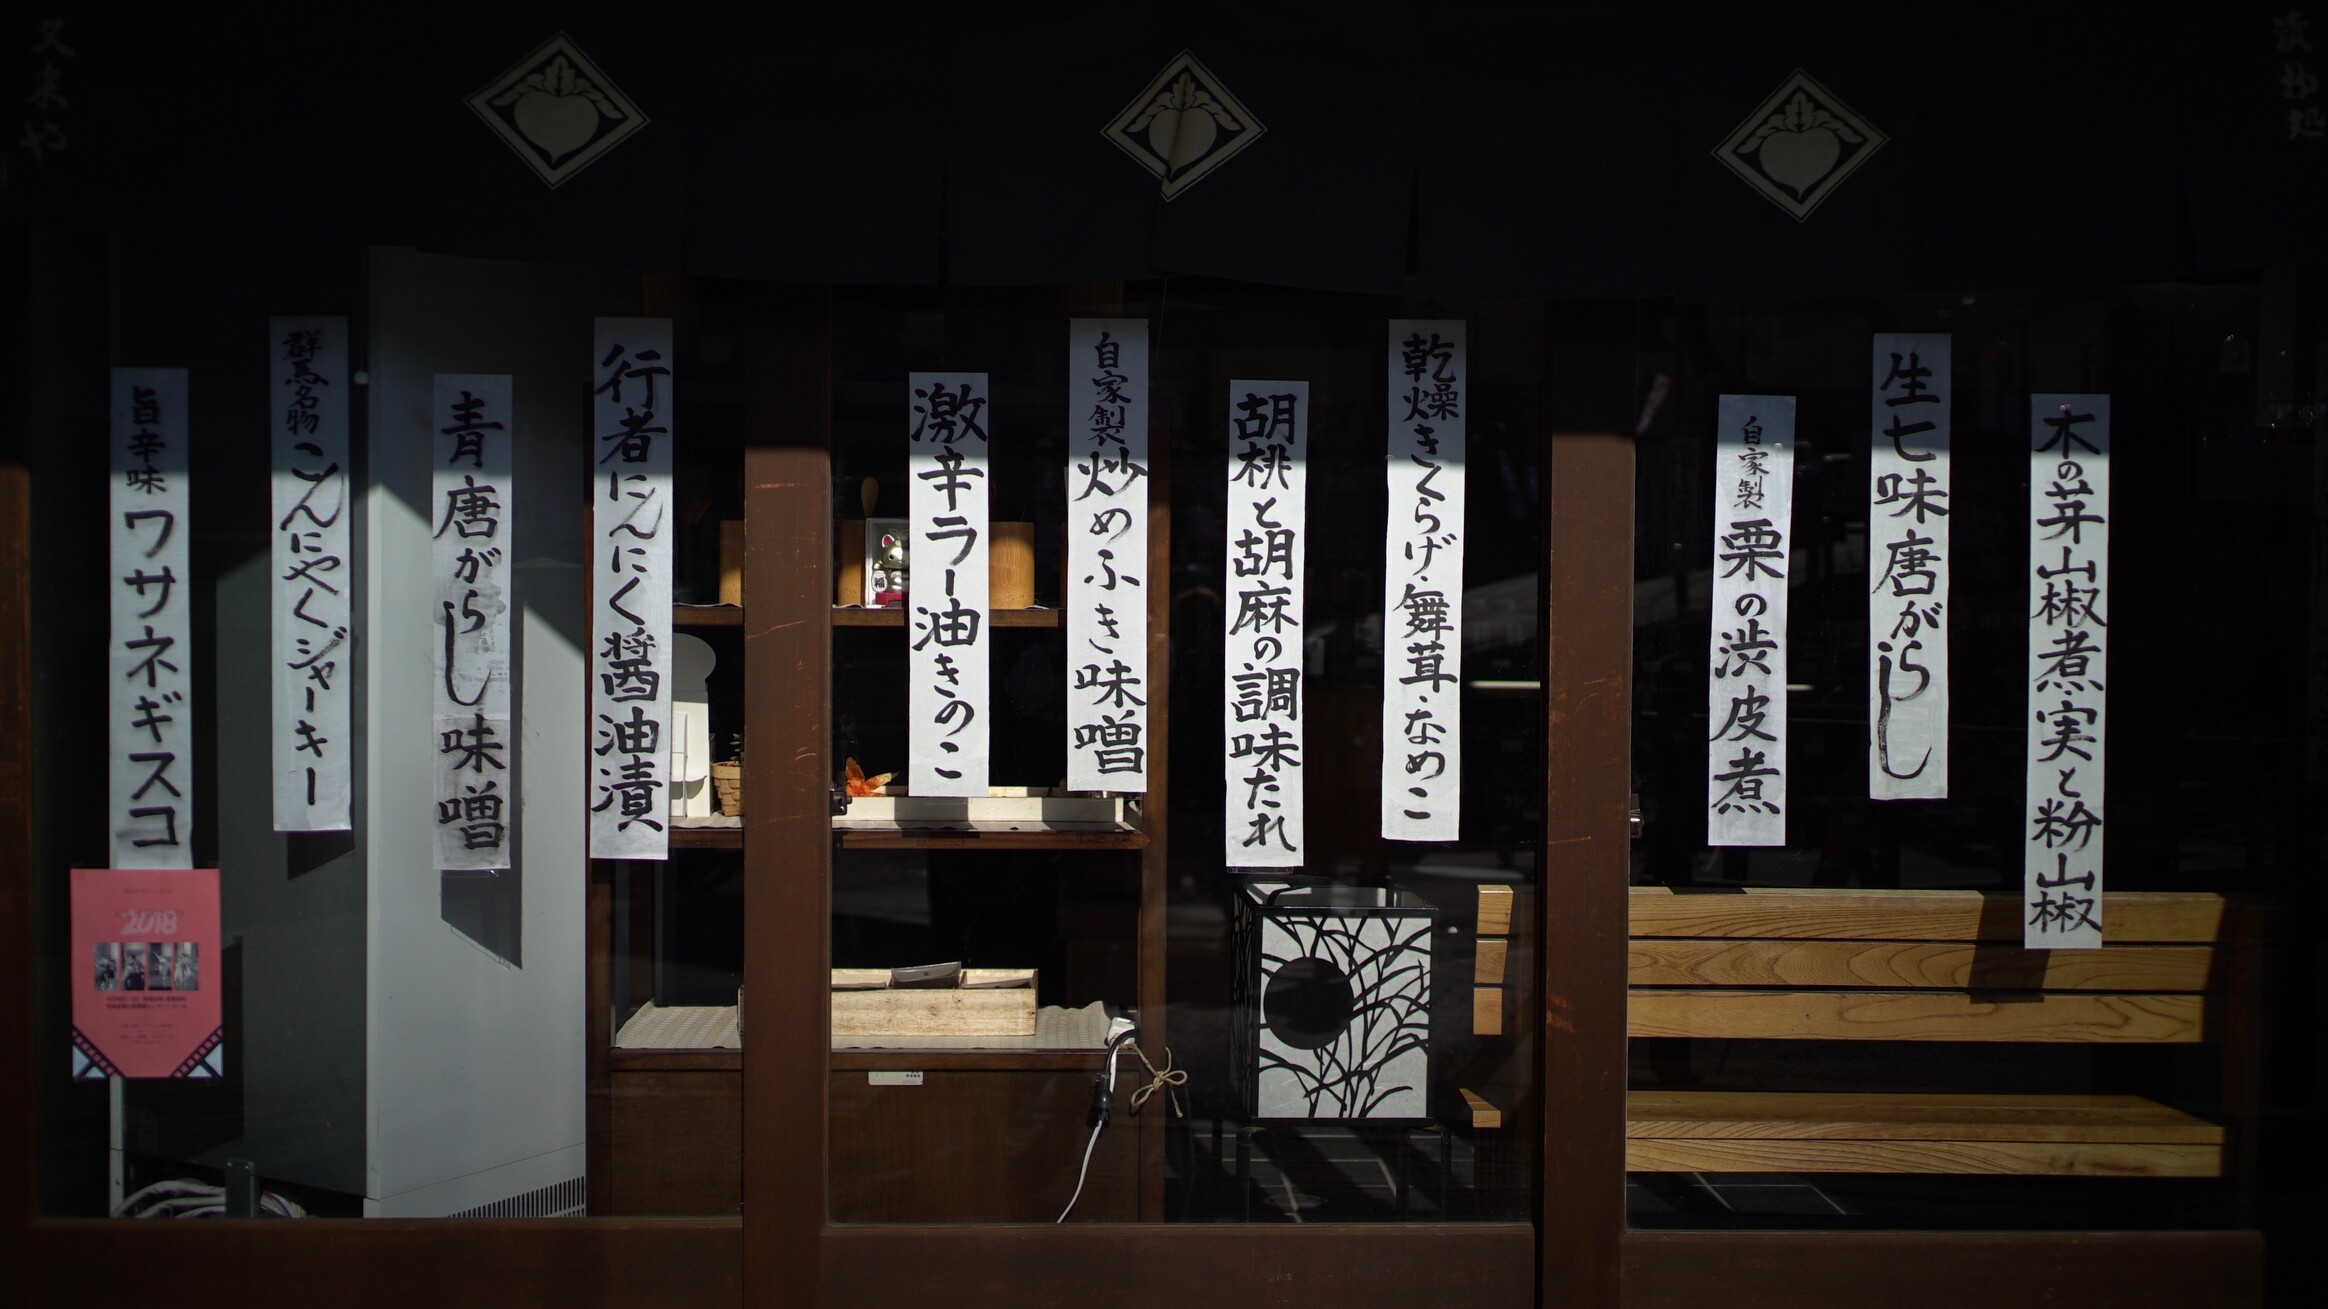 漬物処
又来や
木の芽山椒煮・実と粉山椒
生七味唐がらし
自家製 栗の渋皮煮
乾燥きくらげ・舞茸・なめこ
胡桃と胡麻の調味たれ
自家製 炒めふき味噌
激辛ラー油きのこ
行者にんにく醬油漬
青唐がらし味噌
群馬名物 こんにゃくジャーキー
旨辛味 ワサネギスコ
福
2018